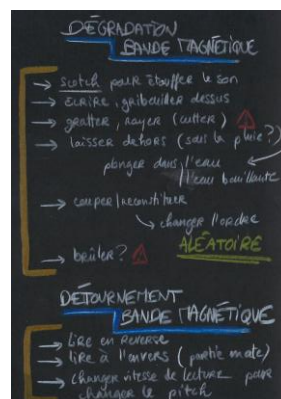 DÉGRADATION
BANDE MAGNÉTIQUE
→ scotch pour étouffer le son
→ écrire, gribouiller dessus
→ gratter, rayer (cutter) ⚠
→ laisser dehors (sous la pluie?)
plonger dans l'eau
l'eau bouillante
→ couper/reconstituer
↳ changer l'ordre
ALÉATOIRE
→ brûler? ⚠
DÉTOURNEMENT
BANDE MAGNÉTIQUE
→ lire en reverse
→ lire à l'envers (partie mate)
→ changer vitesse de lecture pour
changer le pitch